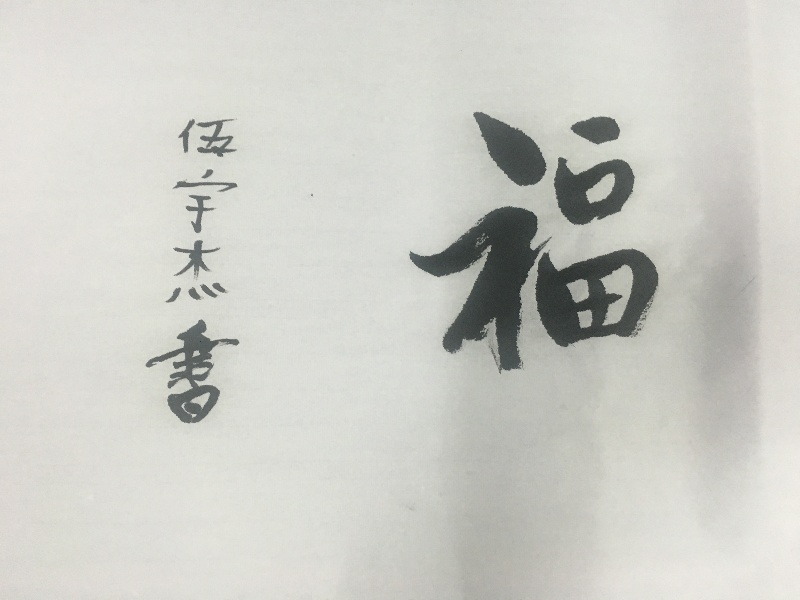 福
伍宇杰書